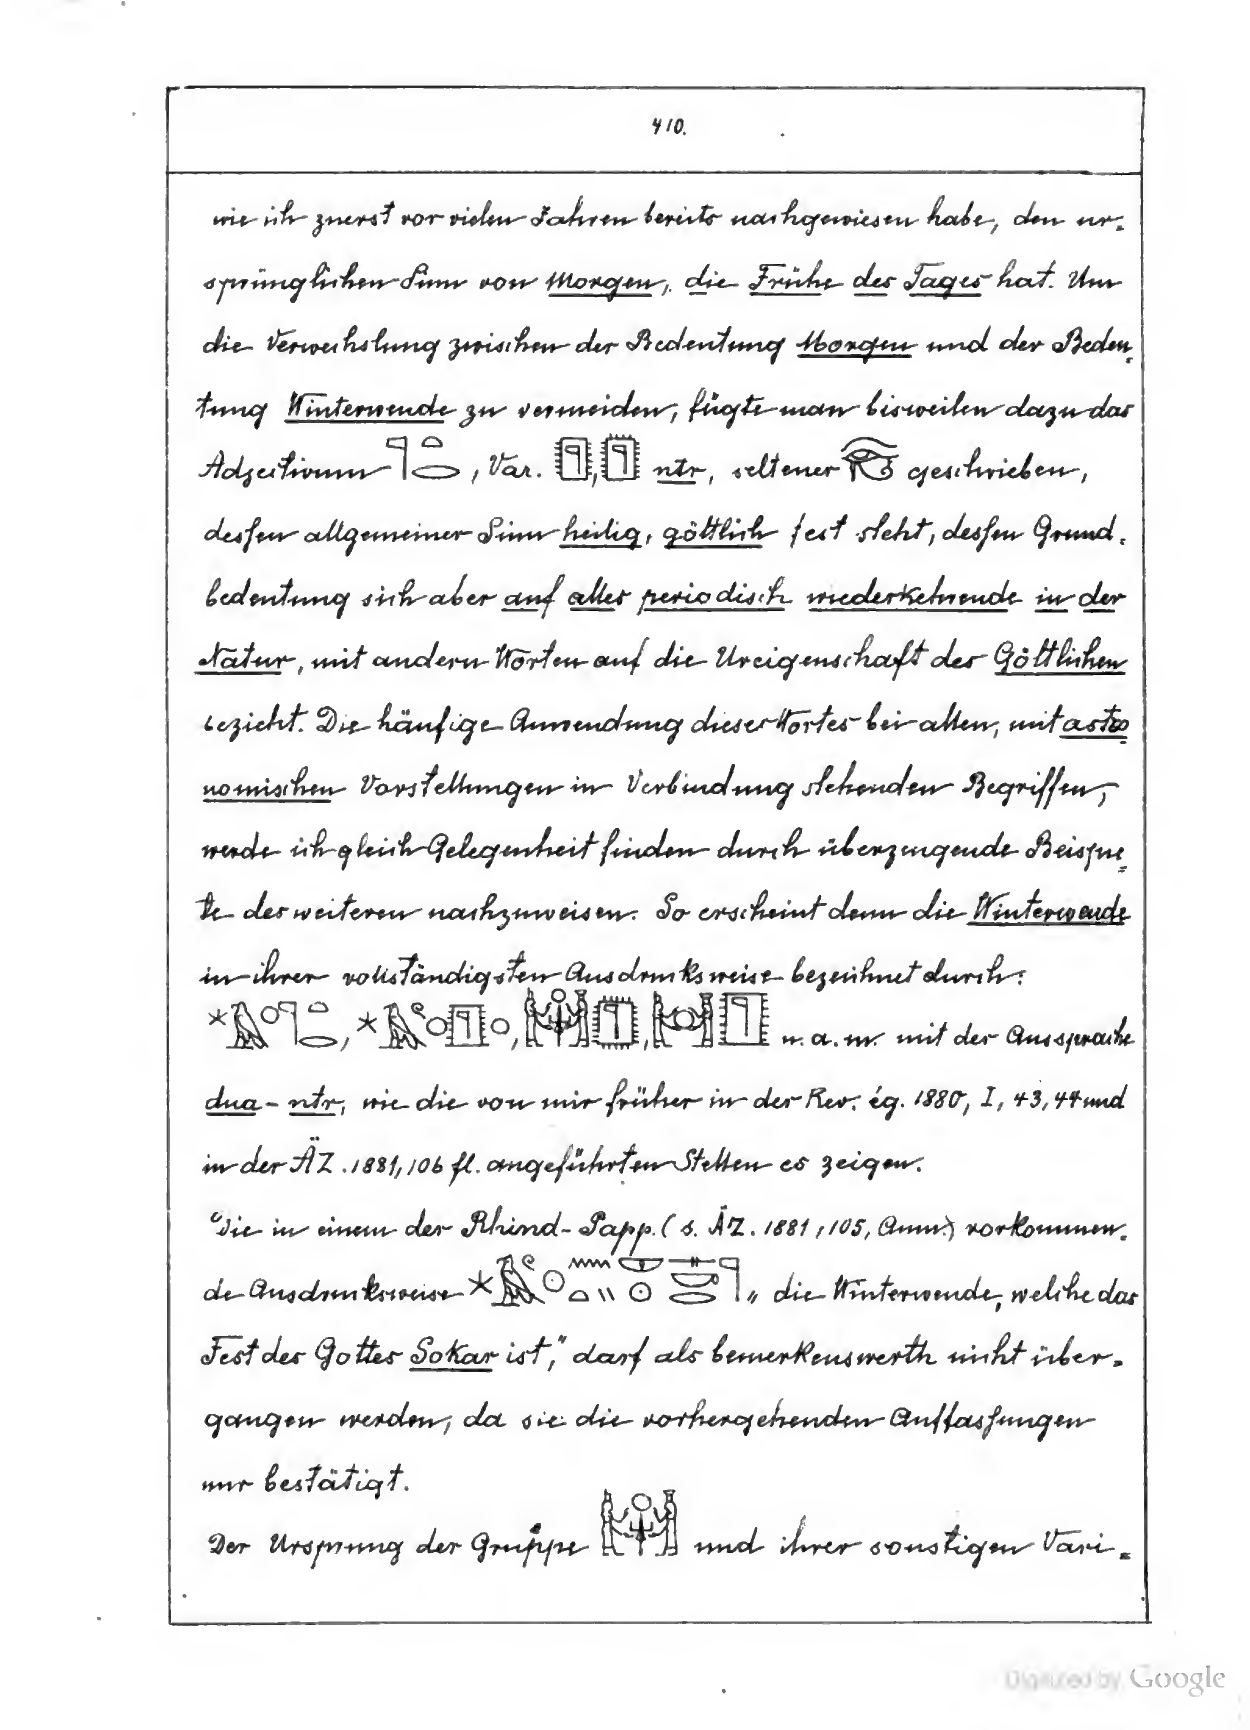 410.
wie ich zuerst vor vielen Jahren bereits nachgewiesen habe, den ur=
sprünglichen Sinn von Morgen, die Frühe des Tages hat. Um
die Verwechslung zwischen der Bedeutung Morgen und der Bedeu=
tung Winterwende zu vermeiden, fügte man bisweilen dazu das
Adjectivum , Var. , ntr, seltener geschrieben,
dessen allgemeiner Sinn heilig, göttlich fest steht, dessen Grund=
bedeutung sich aber auf alles periodisch wiederkehrende in der
Natur, mit andern Worten auf die Ureigenschaft des Göttlichen
bezieht. Die häufige Anwendung dieses Wortes bei allen, mit astro
nomischen Vorstellungen in Verbindung stehenden Begriffen,
werde ich gleich Gelegenheit finden durch überzeugende Beispie=
le des weiteren nachzuweisen. So erscheint denn die Winterwende
in ihrer vollständigsten Ausdrucksweise bezeichnet durch:
, , , u. a. m. mit der Aussprache
dua-ntr, wie die von mir früher in der Rev. ég. 1880, I, 43, 44 und
in der ÄZ. 1881, 106 fl. angeführten Stellen es zeigen.
Die in einem der Rhind-Papp. (s. ÄZ. 1881, 105, Anm.) vorkommen=
de Ausdrucksweise „die Winterwende, welche das
Fest des Gottes Sokar ist," darf als bemerkenswerth nicht über=
gangen werden, da sie die vorhergehenden Auffassungen
nur bestätigt.
Der Ursprung der Gruppe und ihrer sonstigen Vari=
Digitized by Google